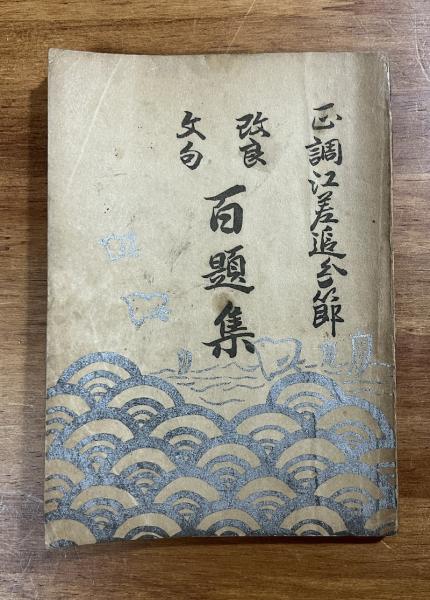 正調江差追分節
改良
文句
百題集